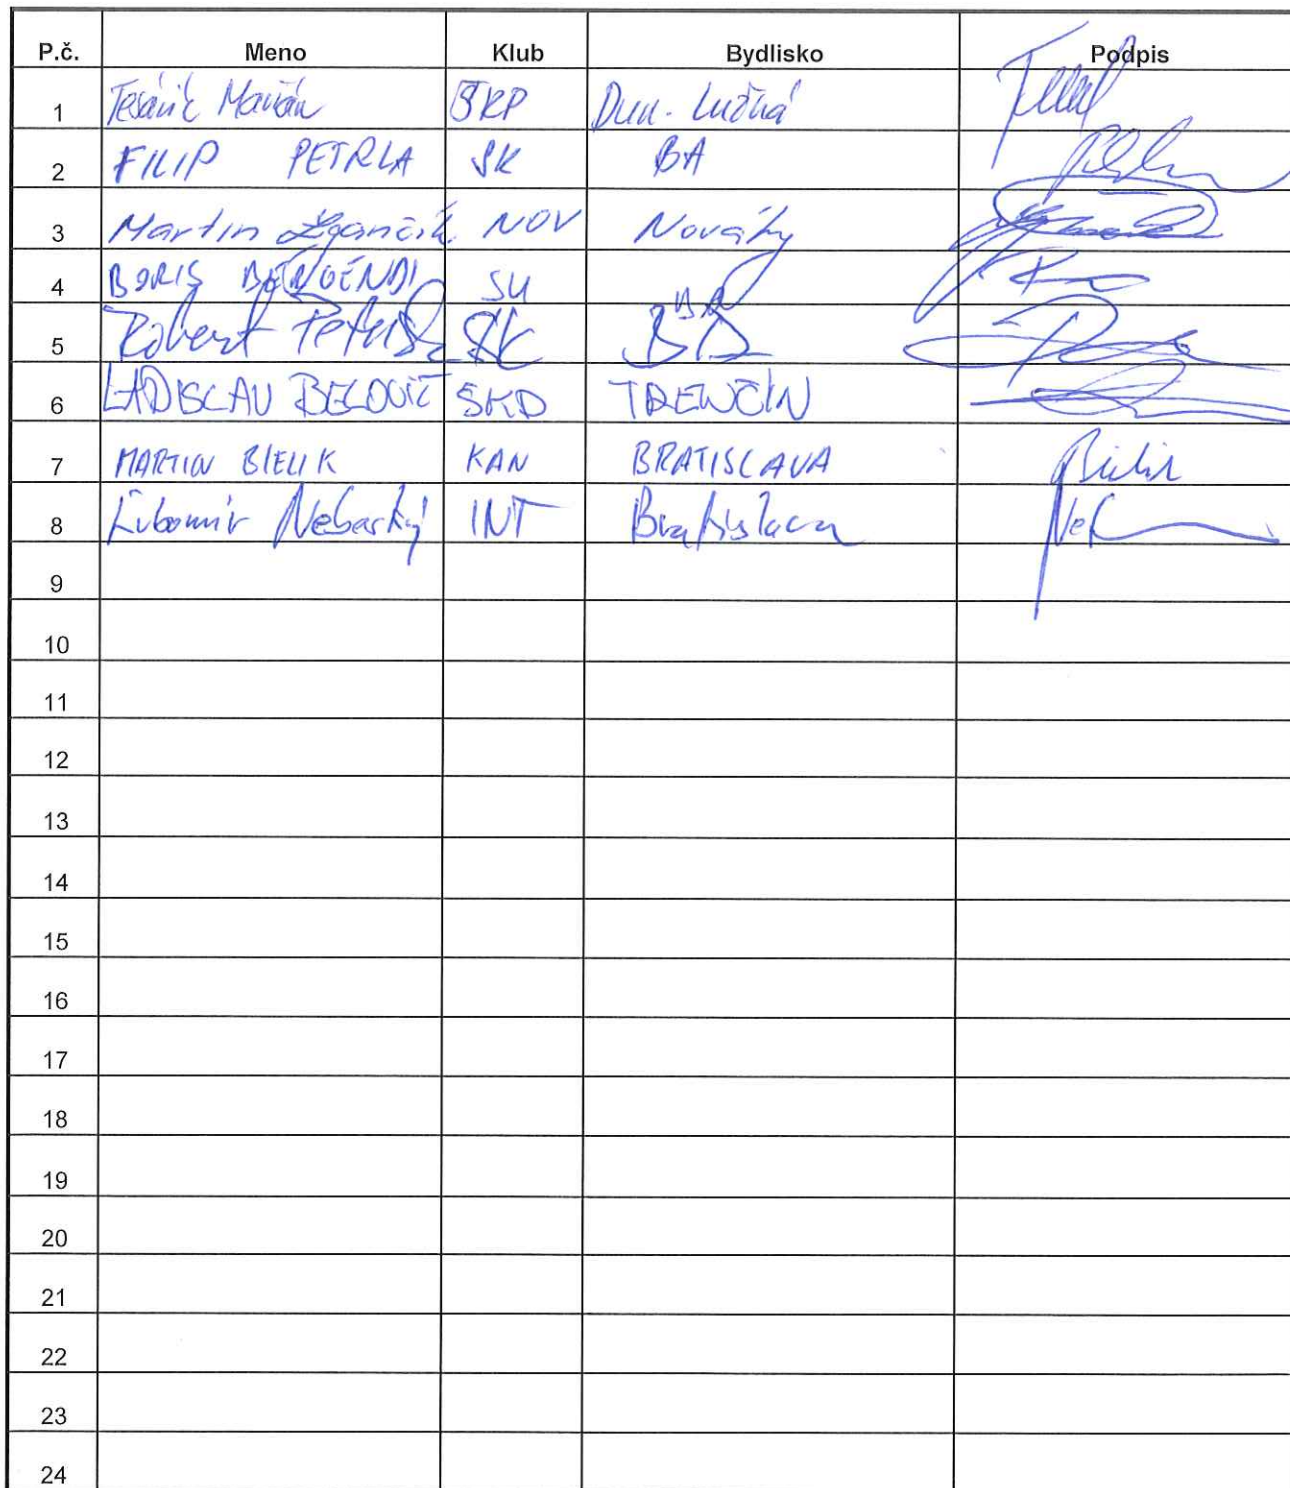 P.č. Meno Klub Bydlisko Podpis
1 Tesárik Marián ŠKP Dun. Lužná
2 FILIP PETRLA SK BA
3 Martin Žgančík NOV Nováky
4 BORIS SU BA
5 Robert SK BA
6 LADISLAV BELOVIČ ŠKD TRENČÍN
7 MARTIN BIELIK KAN BRATISLAVA Bielik
8 Ľubomír Nebarký INT Bratislava
9
10
11
12
13
14
15
16
17
18
19
20
21
22
23
24